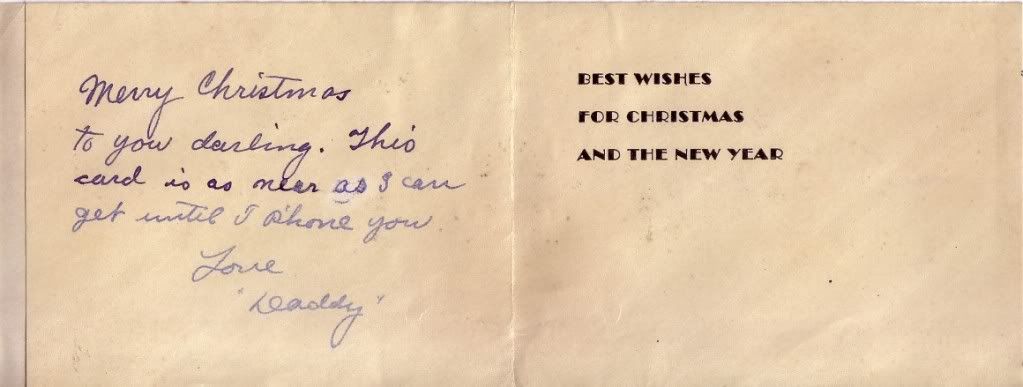 Merry Christmas
to you darling. This
card is as near as I can
get until I Phone you.
Love
"Daddy"
BEST WISHES
FOR CHRISTMAS
AND THE NEW YEAR